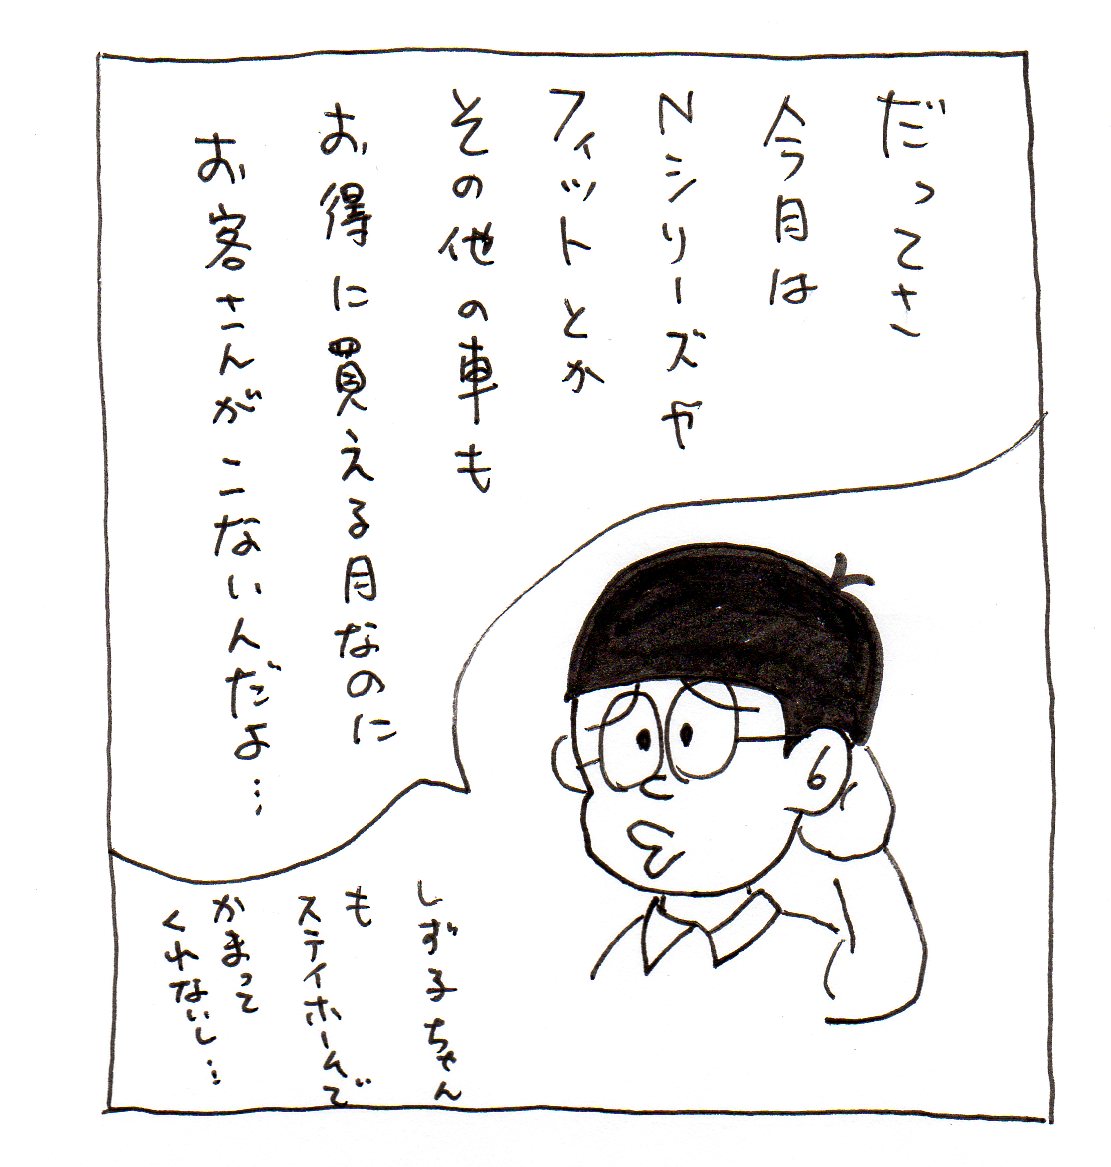 だってさ
今月は
Nシリーズや
フィットとか
その他の車も
お得に買える月なのに
お客さんがこないんだよ…
しず子ちゃん
も
ステイホームで
かまって
くれないし…